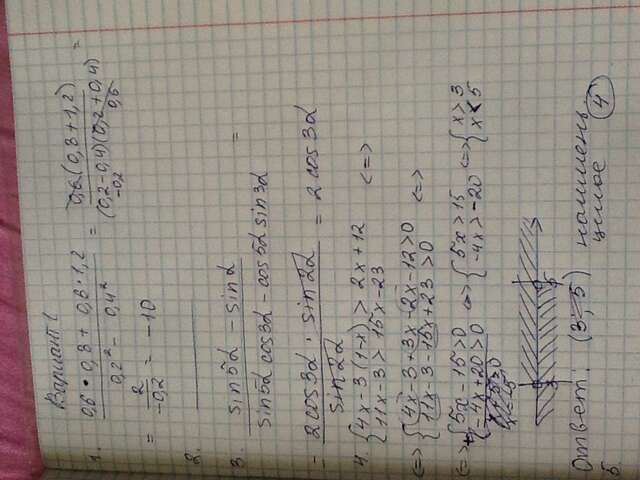 Вариант 1
1. (0,6 · 0,8 + 0,6 · 1,2) / (0,2² − 0,4²) = 0,6(0,8 + 1,2) / ((0,2 − 0,4)(0,2 + 0,4)) =
−0,2 0,6
= 2 / −0,2 = −10
2. ———
3. (sin5α − sinα) / (sin5α cos3α − cos5α sin3α) =
= 2cos3α · sin2α / sin2α = 2cos3α
4. { 4x − 3(1−x) > 2x + 12
{ 11x − 3 > 15x − 23 <=>
<=> { 4x − 3 + 3x − 2x − 12 > 0
{ 11x − 3 − 15x + 23 > 0 <=>
<=> { 5x − 15 > 0 <=> { 5x > 15 <=> { x > 3
{ −4x + 20 > 0 { −4x > −20 { x < 5
3 5
Ответ: (3; 5) наимень.
целое 4
5.